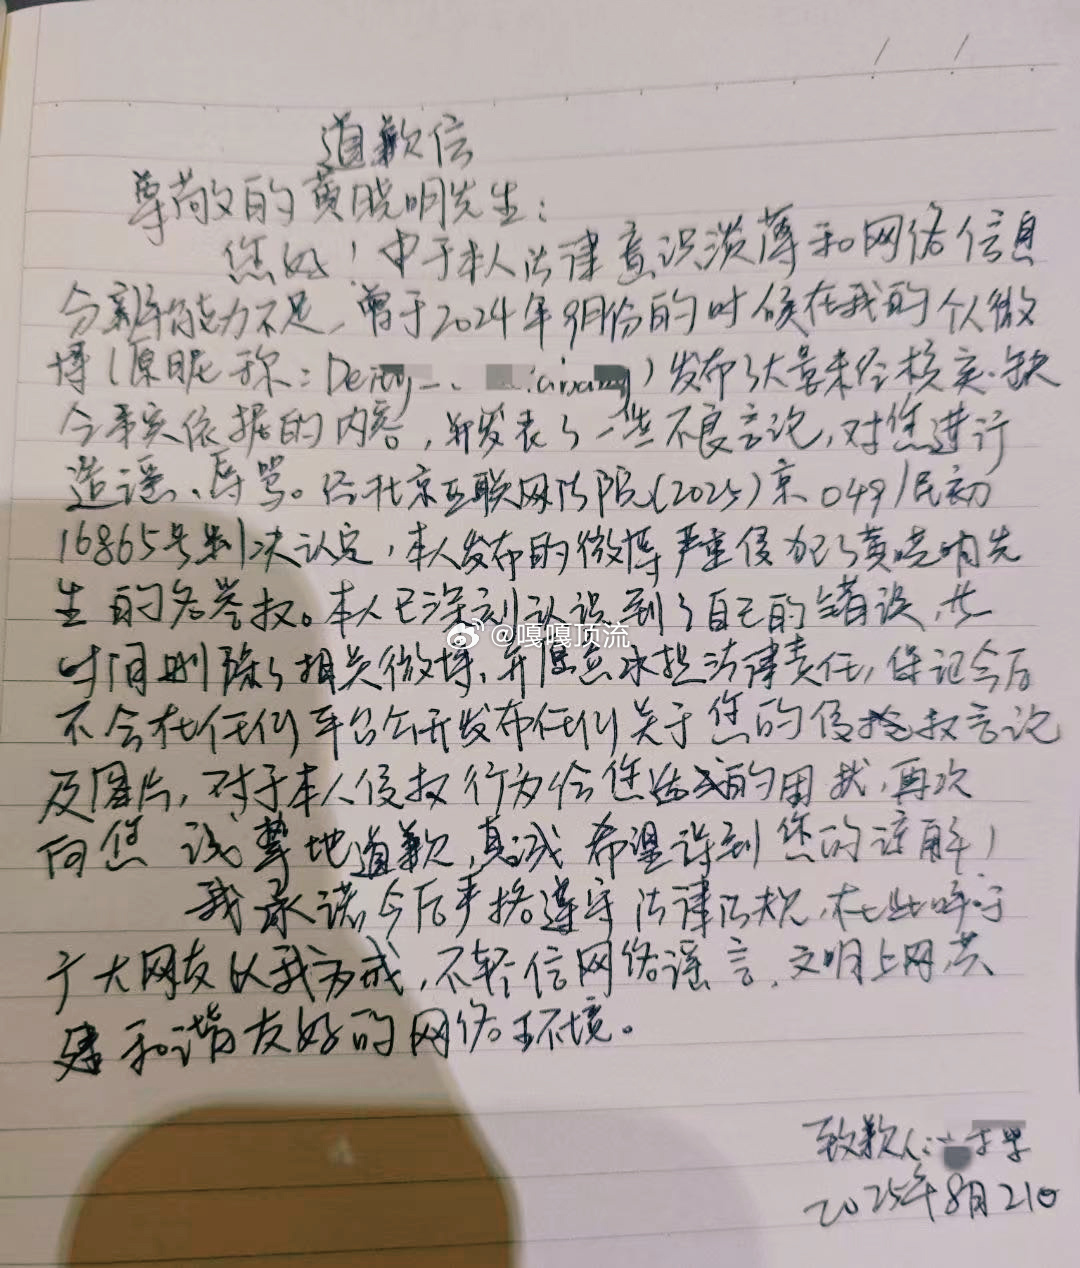 道歉信
尊敬的黄晓明先生:
您好!由于本人法律意识淡薄和网络信息
分辨能力不足,曾于2024年9月份的时候在我的个人微
博(原昵称:Deity_)发布了大量未经核实、缺
令事实依据的内容,并发表了一些不良言论,对您进行
造谣、辱骂。经北京互联网法院(2025)京0491民初
16865号判决认定,本人发布的微博严重侵犯了黄晓明先
生的名誉权。本人已深刻认识到了自己的错误,此
时间删除了相关微博,并愿意承担法律责任,保证今后
不会在任何平台公开发布任何关于您的侵权言论
及图片,对于本人侵权行为给您造成的困扰,再次
向您 诚挚地道歉,真诚希望得到您的谅解!
我承诺今后严格遵守法律法规,在此呼吁
广大网友以我为戒,不轻信网络谣言,文明上网共
建和谐友好的网络环境。
致歉人:
2025年8月21日
@嘎嘎顶流